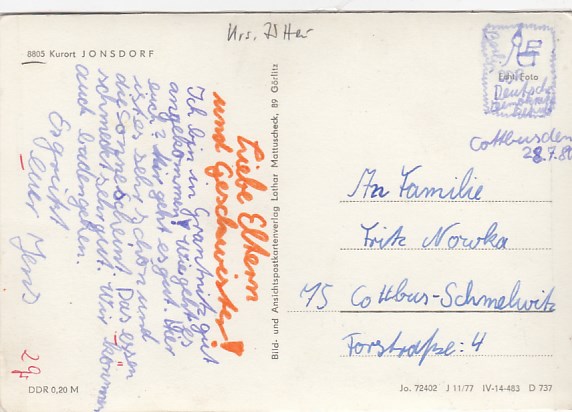 Urs.
8805 Kurort JONSDORF
Liebe Eltern
und Geschwister!
Ich bin in gut
angekommen. Wie geht es
euch? Mir geht es gut. Hir
ist es sehr schön und
die Sonne scheint. Das essen
schmeckt sehr gut. Wir
auch badengehen.
Es grüßt
euer Jens
DDR 0,20 M
Bild- und Ansichtspostkartenverlag Lothar Mattuscheck, 89 Görlitz
Echt Foto
Deutsche
Cottbus den
28.7.80
An Familie
Fritz Nowka
75 Cottbus-Schmelwitz
Forstraße: 4
Jo. 72402 J 11/77 IV-14-483 D 737